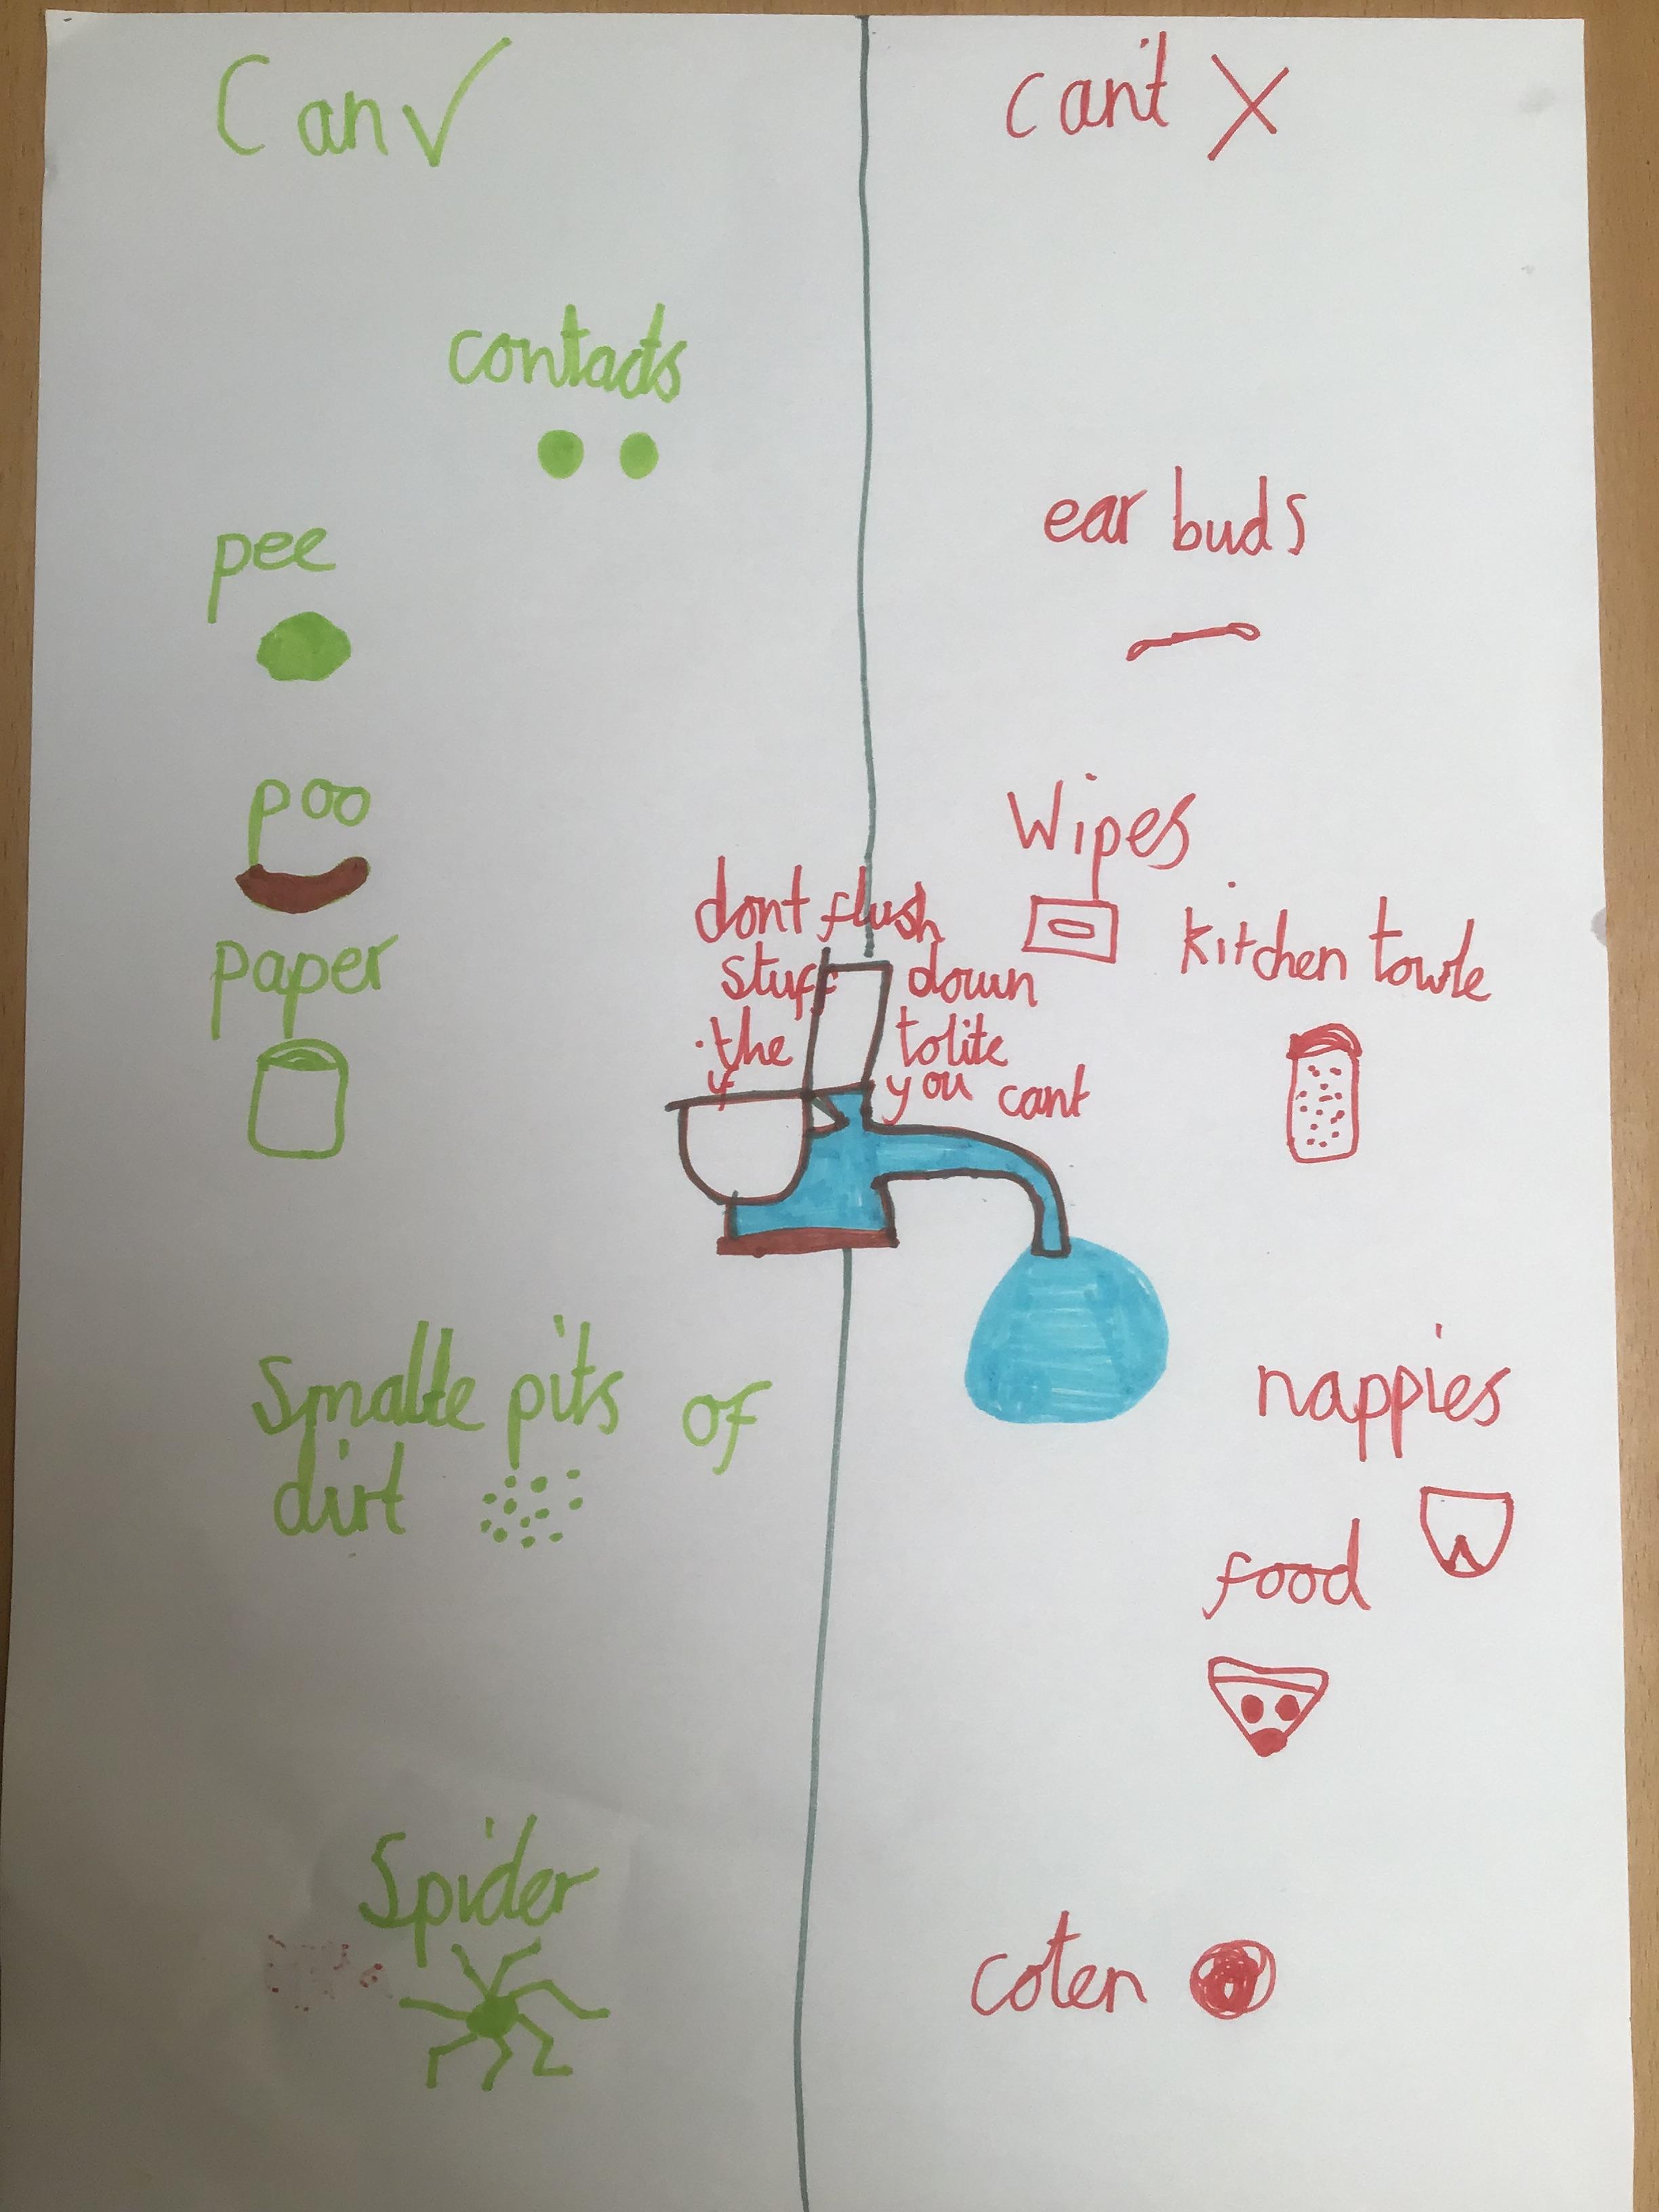 Can
can't
contacts
pee
poo
paper
Smalle pits of
dirt
Spider
dont flush
stuff down
the tolite
if you cant
ear buds
Wipes
kitchen towle
nappies
food
coten